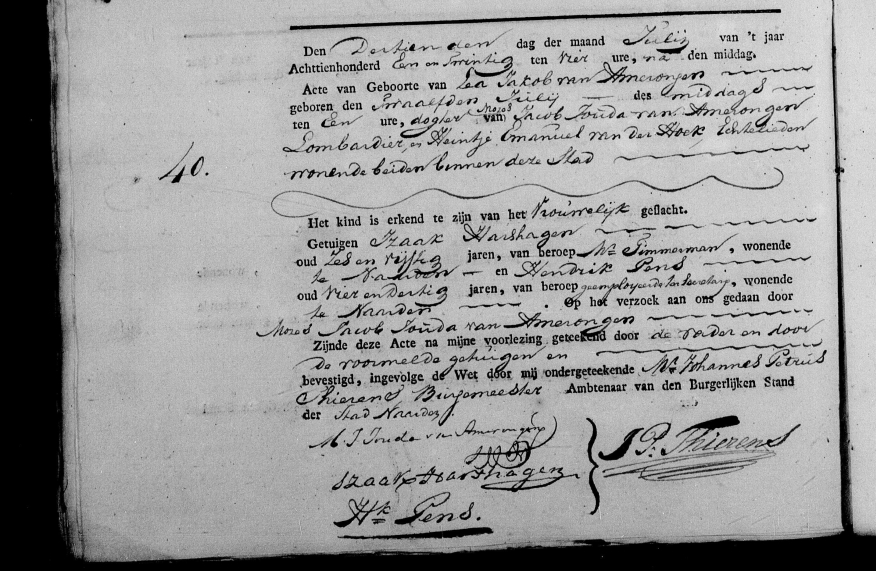 Den Dertienden dag der maand Julij van 't jaar
Achttienhonderd Een en Twintig ten Vier ure, na den middag.
Acte van Geboorte van Lea Jakob van Amerongen
geboren den Twaalfden Julij des middags
ten Een ure, dogter van Mozes Jacob Jouda van Amerongen
Lombardier en Heintje Emanuel van der Hoek Echtelieden
wonende beiden binnen deze Stad
40.
Het kind is erkend te zijn van het Vrouwelijk geslacht.
Getuigen Izaak Harshagen
oud Zes en Vijftig jaren, van beroep Mr Timmerman, wonende
te Naarden en Hendrik Pens
oud Vier en Dertig jaren, van beroep geemployeerde ter Secretarij, wonende
te Naarden. Op het verzoek aan ons gedaan door
Mozes Jacob Jouda van Amerongen
Zijnde deze Acte na mijne voorlezing geteekend door de vader en door
de voormelde getuigen en
bevestigd, ingevolge de Wet door mij ondergeteekende Mr. Johannes Petrus
Thierens Burgemeester Ambtenaar van den Burgerlijken Stand
der Stad Naarden
M. J Jouda van Amerongen
J P. Thierens
Izaak Harshagen
Hk Pens.